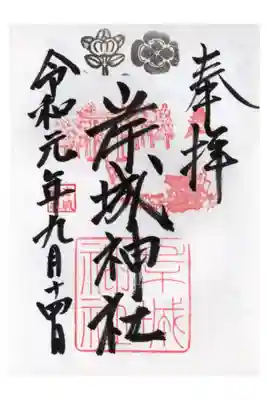 奉拝
岸城神社
令和元年九月十四日
岸城神社